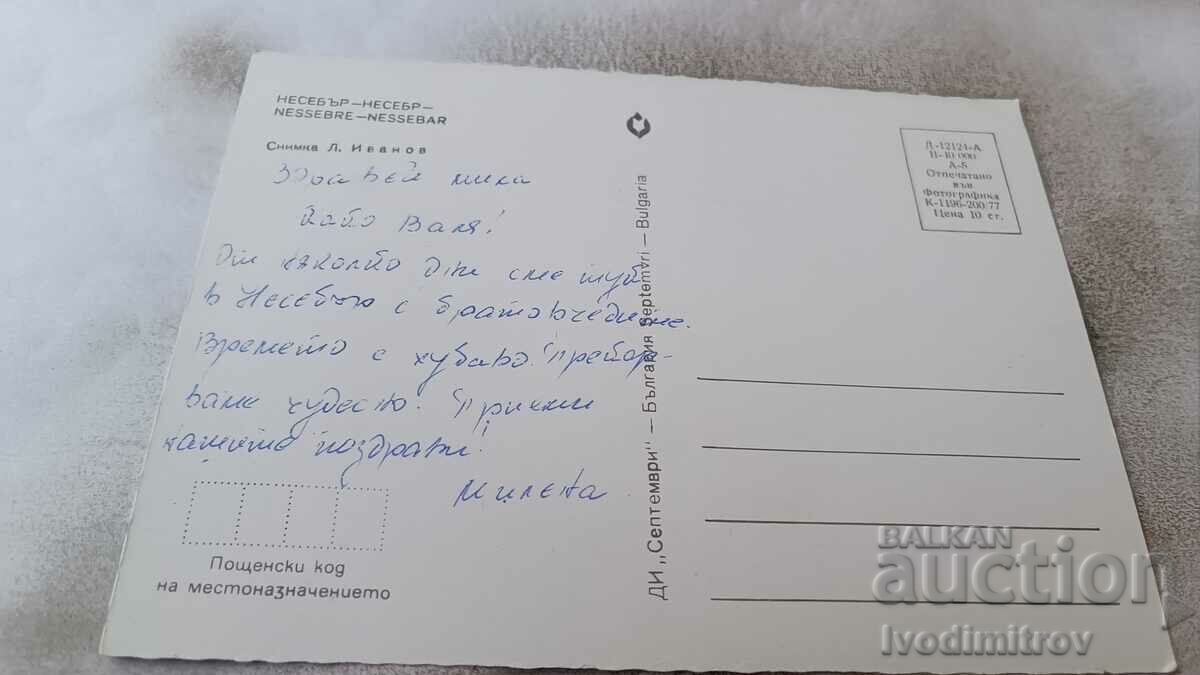 НЕСЕБЪР—НЕСЕБР—
NESSEBRE—NESSEBAR
Снимка Л. Иванов
Здравей мила
како Валя!
От няколко дни сме тук
в Несебър с братовчедите.
Времето е хубаво. Прекар-
ваме чудесно. Приеми
нашите поздрави!
Милена
Пощенски код
на местоназначението
ДИ „Септември" — България Septemvri — Bulgaria
Д-12124-А
II-10 000
А-5
Отпечатано
във
Фотографика
К-1196-200/77
Цена 10 ст.
BALKAN
auction
Ivodimitrov